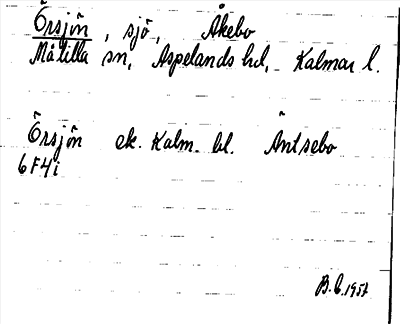 Örsjön, sjö, Åkebo
Målilla sn, Aspelands hd, Kalmar l.
Örsjön ek. Kalm. bl. Äntsebo
6F4i
B.C. 1957